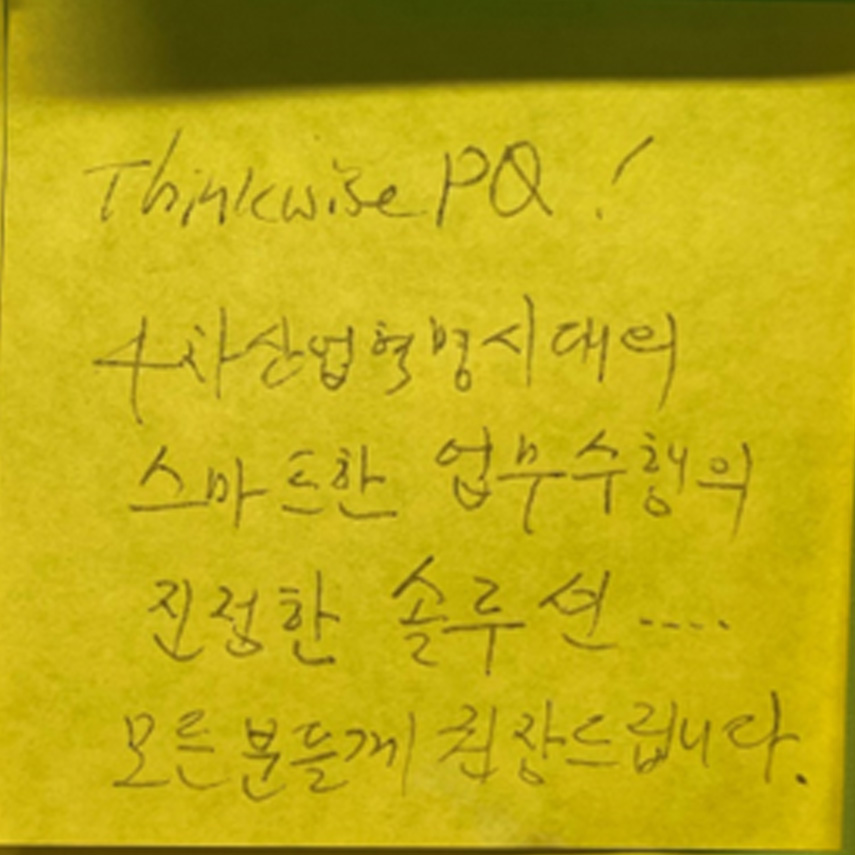 Thinkwise PQ!
4차산업혁명시대의
스마트한 업무수행의
진정한 솔루션....
모든분들께 권장드립니다.